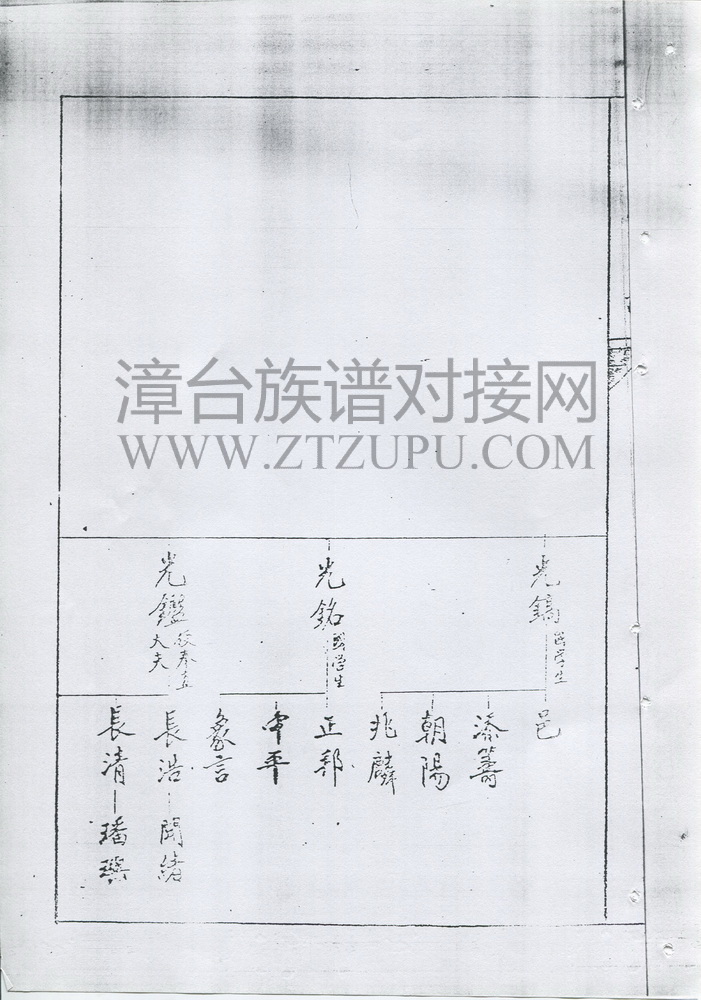 漳台族谱对接网
WWW.ZTZUPU.COM
光鎬
國學生
光銘
國學生
光鑑
大夫
邑
添籌
朝陽
兆麟
正邦
中平
象言
長浩
開緒
長清
璠璵